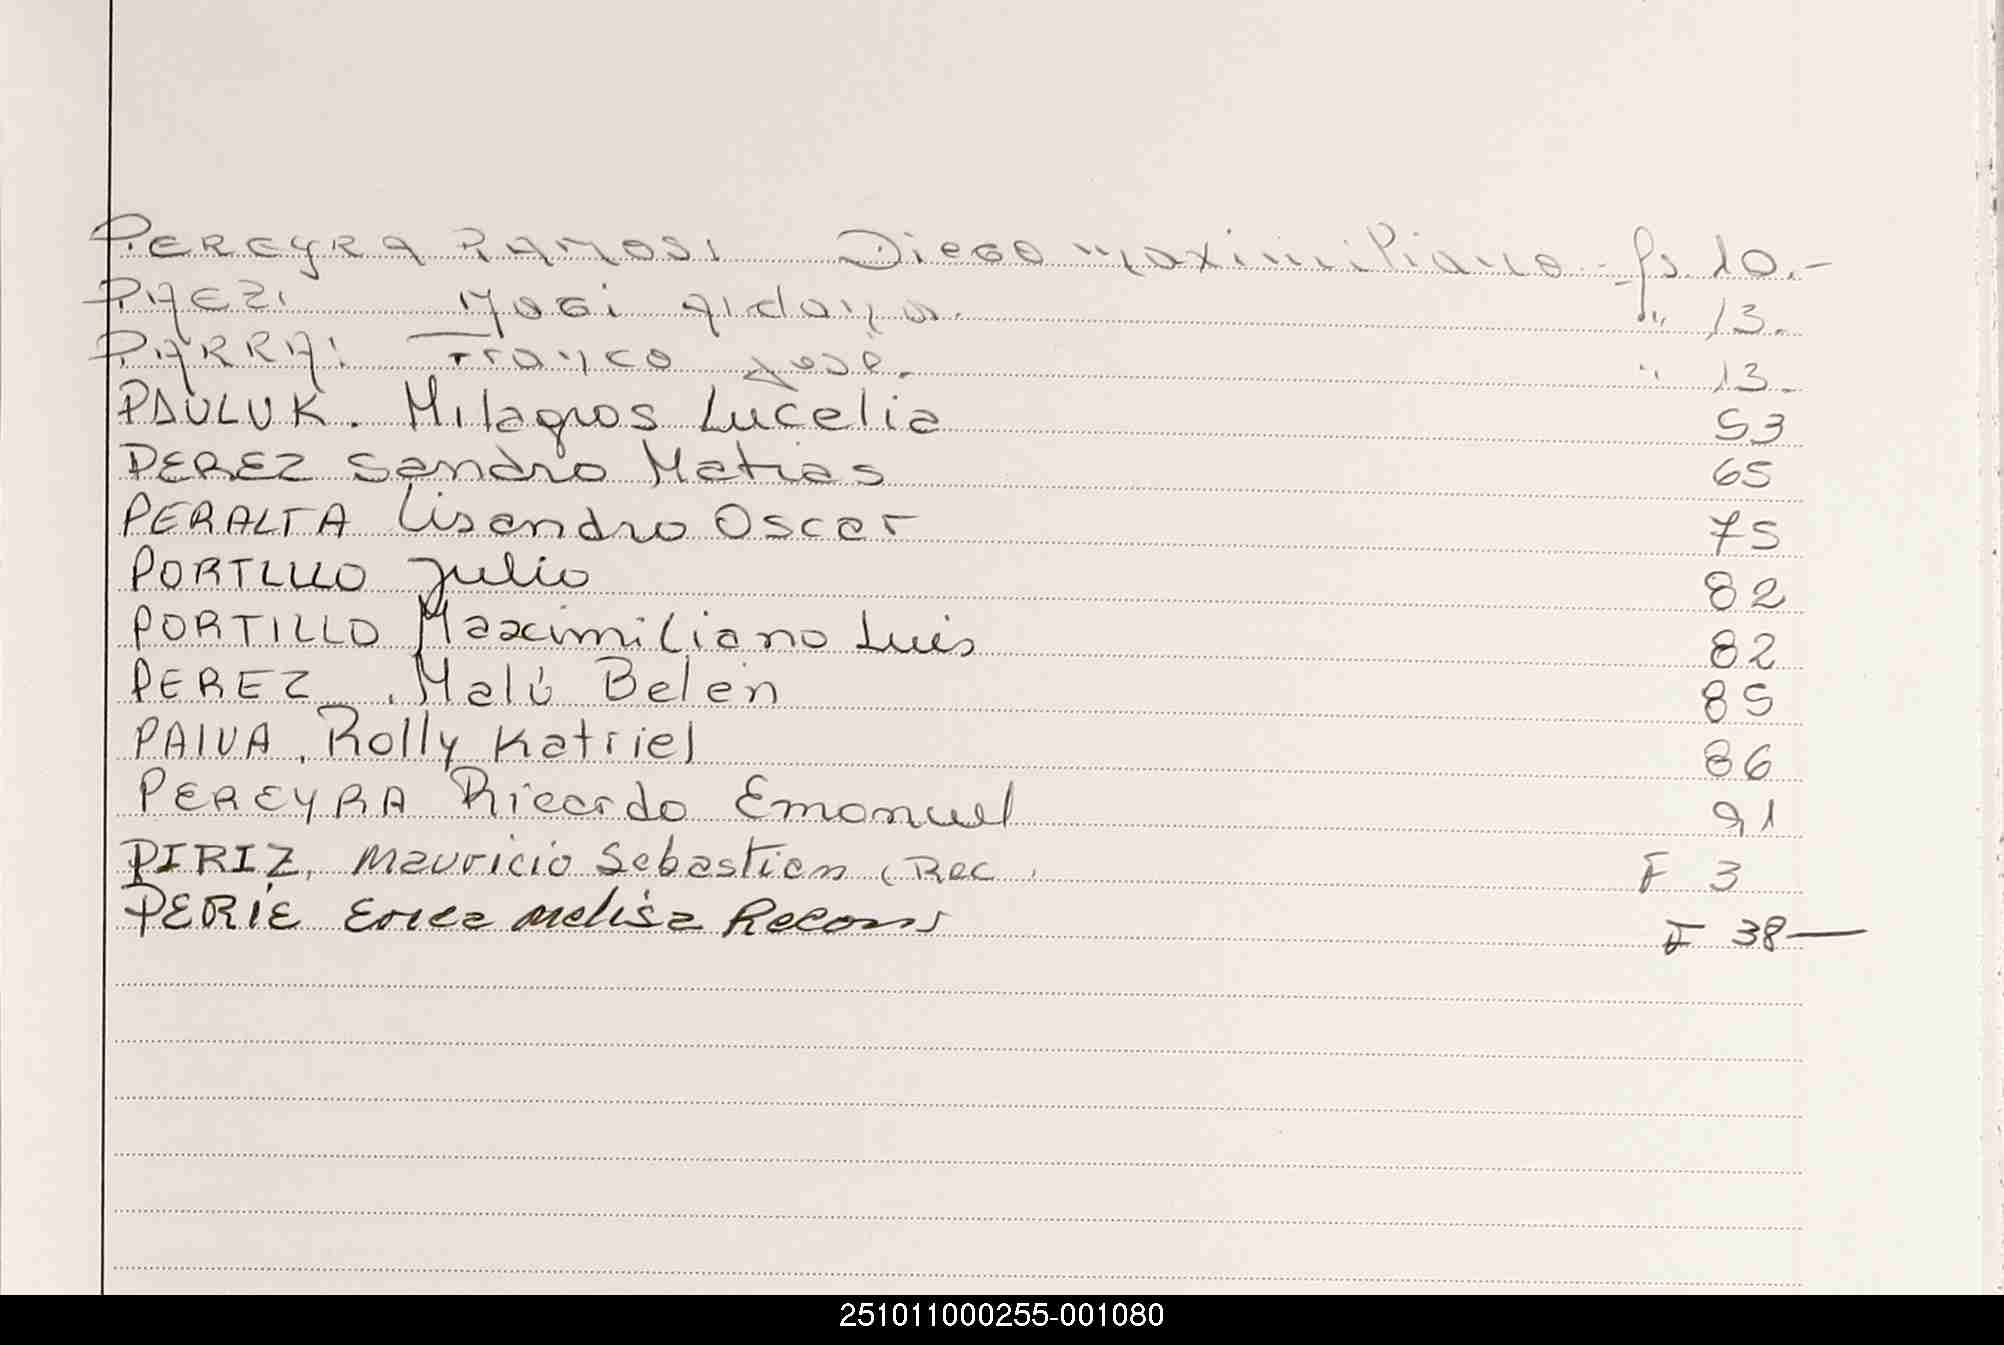 PEREYRA RAMOS: Diego Maximiliano - fs. 10.-
PAEZ: Aidana. " 13.
PARRA: Franco José. " 13.
PAULUK. Milagros Lucelia 53
PEREZ Sandro Matias 65
PERALTA Lisandro Oscar 75
PORTILLO Julio 82
PORTILLO Maximiliano Luis 82
PEREZ. Malú Belén 85
PAIVA, Rolly Katriel 86
PEREYRA Ricardo Emanuel 91
PIRIZ, Mauricio Sebastian (Rec. F 3
PERIE Erica Melisa F 38—
251011000255-001080